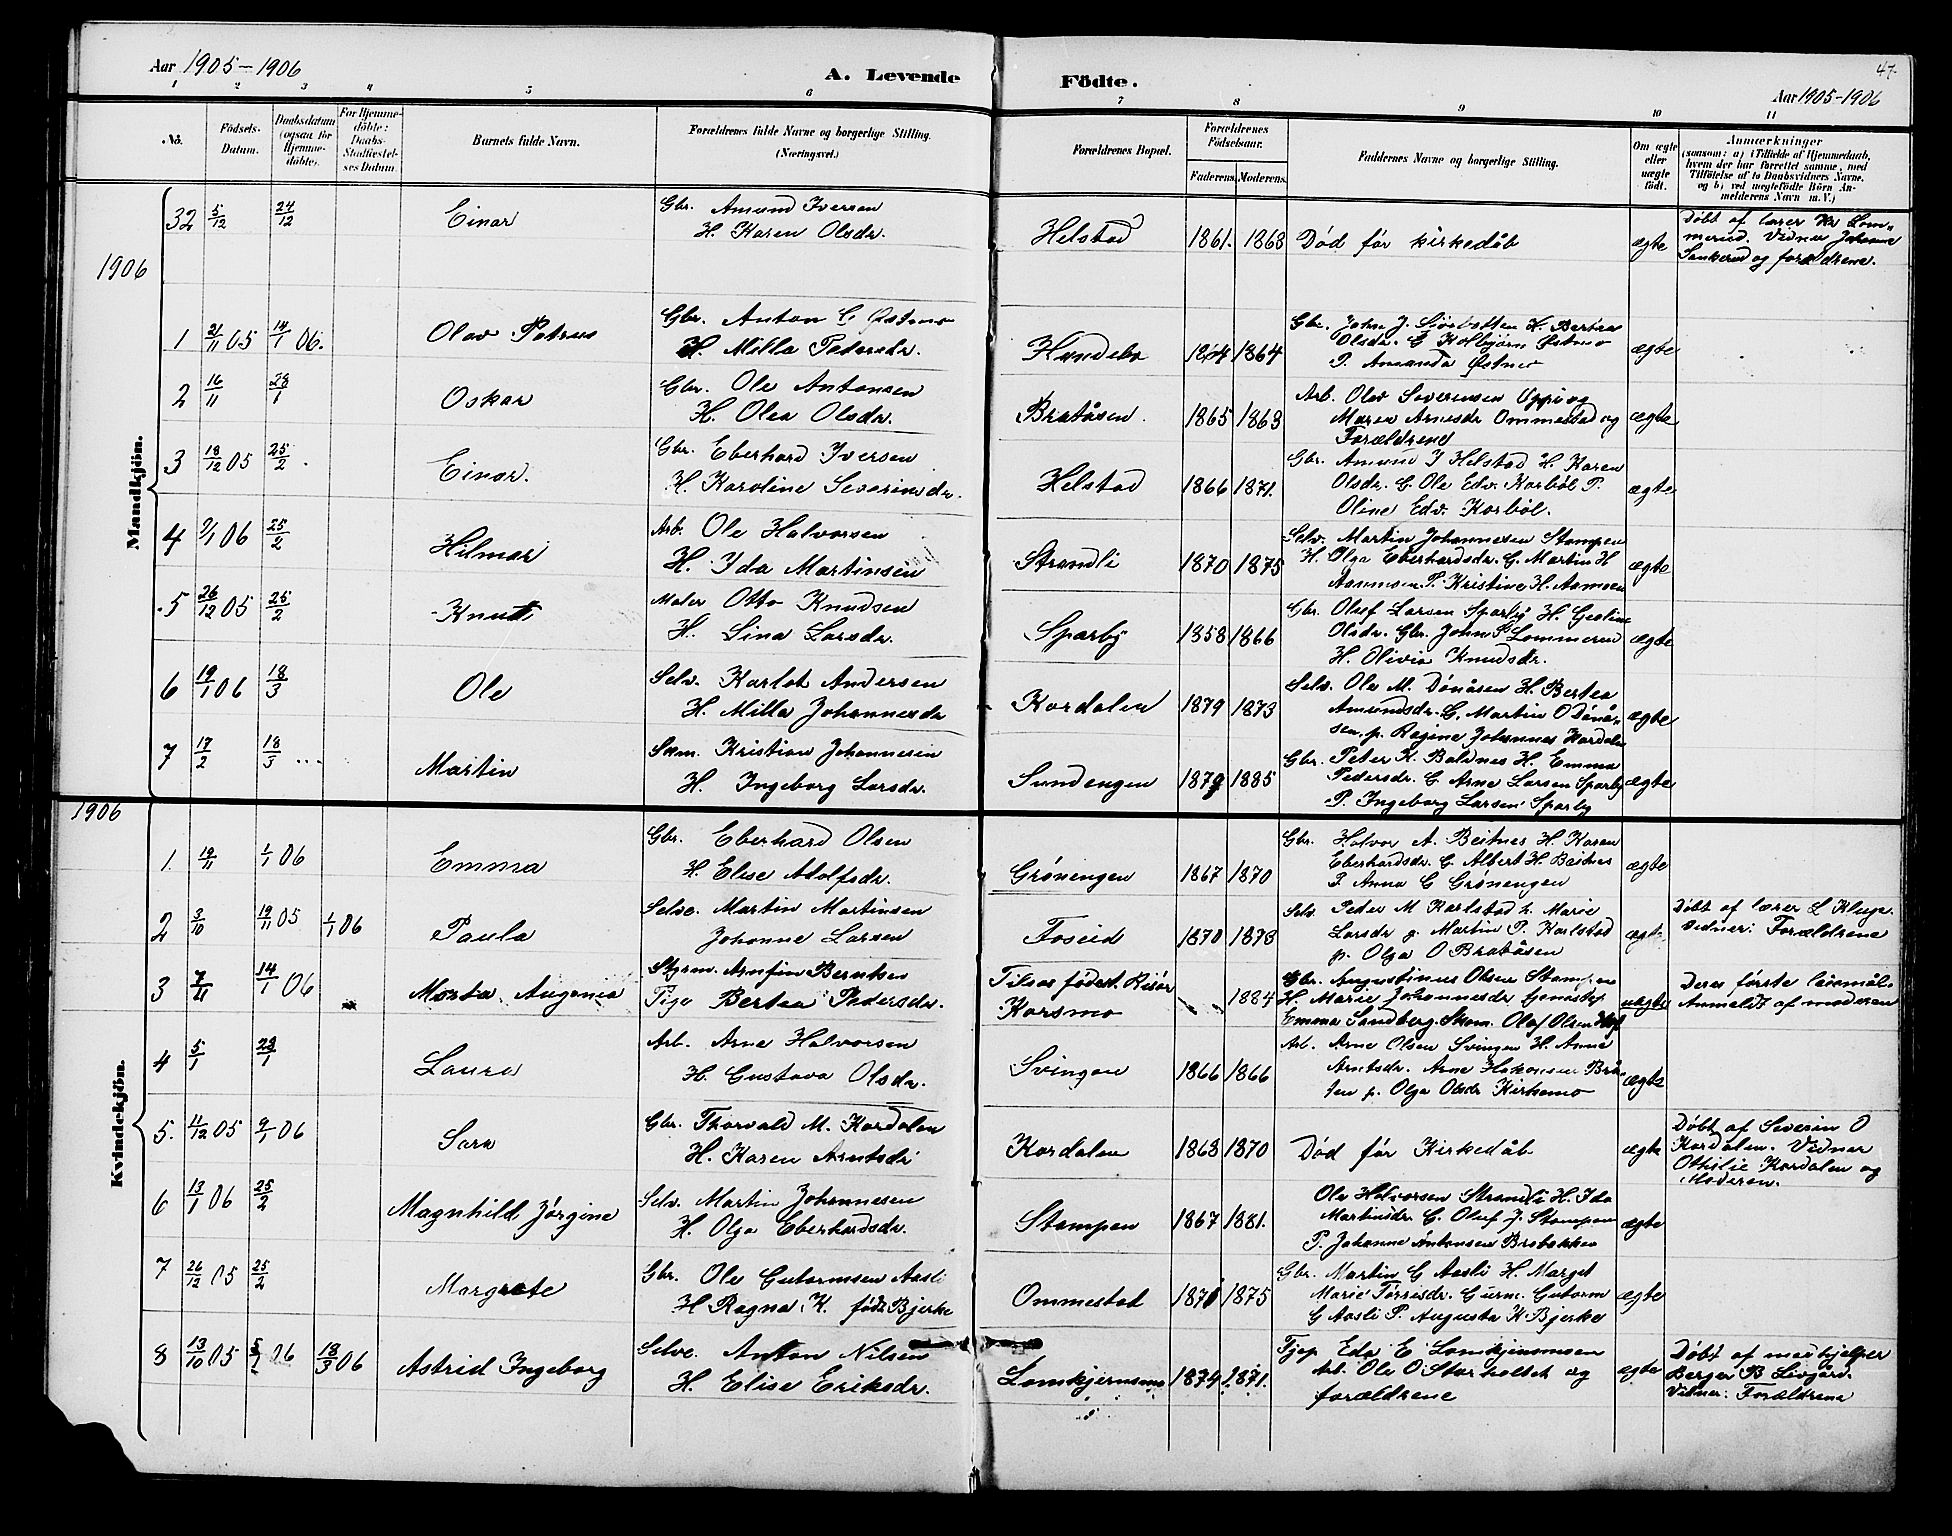 Aar 1905-1906
A. Levende Födte.
47.
Aar 1905-1906
1 2 3 4 5 6 7 8 9 10 11
No.
Födsels-Datum.
Daabsdatum (ogsaa for Hjemme-døbte).
For Hjemme-döbte: Daabs-Stadfæstel-ses Datum.
Barnets fulde Navn.
Forældrenes fulde Navne og borgerlige Stilling. (Næringsvei.)
Forældrenes Bopæl.
Forældrenes Födselsaar.
Faderens. Moderens.
Faddernes Navne og borgerlige Stilling.
Om ægte eller uægte födt.
Anmærkninger
(saasom: a) i Tilfælde af Hjemmedaab,
hvem der har forrettet samme, med
Tilföielse af to Daabsvidners Navne,
og b) ved uægtefödte Börn An-
melderens Navn m. V.)
32 5/12 24/12 Einar
Gbr. Amund Iversen
H. Karen Olsdr.
Helstad 1861. 1863 Død før kirkedåb ægte
Døbt af lærer
Vidner Johanne
og forældrene.
1906
Mandkjön.
1 21/11 05 14/1 06. Olav Petrus
Gbr. Anton G Østmo
H. Milla Pedersdr.
Hundebo 1864 1864
Gbr. John J. H. Bertea
Olsdr. G Kolbjørn Østmo
P. Amanda Østmo
ægte
2 16/11 28/1 Oskar
Gbr. Ole Antonsen
H. Olea Olsdr.
Bratåsen. 1865 1863
Arb. Olav Severensen Oppi og
Maren Arnesdr Ommestad og
Forældrene
ægte
3 18/12 05 25/2 Einar.
Gbr. Eberhard Iversen
H. Karoline Severinsdr.
Helstad 1866 1871.
Gbr. Amund I Helstad H. Karen
Olsdr. G. Ole Edv. Korbøl P.
Oline Edv. Korbøl.
ægte
4 2/1 06 25/2 Hilmar
Arb. Ole Halvorsen
H. Ida Martinsen
Strandli 1870 1875
Selv. Martin Johannesen Stampen
H. Olga Eberhardsdr. G. Martin H
Aamosen P. Kristine H. Aamosen
ægte
5 26/12 05 25/2 Knut
Maler Otto Knudsen
H. Lina Larsdr.
Sparby 1858 1866
Gbr. Oluf Larsen Sparby H. Gesline
Olsdr. Gbr. John P Lommerud
H. Olivia Knudsdr.
ægte
6 19/1 06 18/3 Ole
Selv. Karlot Andersen
H. Milla Johannesdr
Kordalen 1879 1873
Selv. Ole M. Dønåsen H. Bertea
Amundsdr. G. Martin O Dønå-
sen, p. Ragine Johannes Kordalen
ægte
7 17/2 18/3 Martin
Søm. Kristian Johannesen
H. Ingeborg Larsdr.
Sundengen 1879 1885
Gbr. Peter K. Baldnes H. Emma
Pedersdr. G. Arne Larsen Sparby
P. Ingeborg Larsen Sparby
ægte
1906
Kvindekjön.
1. 19/11 1/1 06 Emma
Gbr. Eberhard Olsen
H. Elise Adolfsdr.
Grønengen 1867 1870
Gbr. Halvor A. Beitnes H. Karen
Eberhardsdr. G. Albert H. Beitnes
P. Anna G Grønengen
ægte
2 3/10 19/11 05 1/1 06 Paula
Selve. Martin Martinsen
Johanne Larsen
Foseid 1870 1873
Selv. Peder M Karlstad h. Marie
Larsdr g. Martin P. Karlstad
p. Olga O Bratåsen
ægte
Døbt af lærer L Kluge.
Vidner: Forældrene
3 7/11 14/1 06 Marta Augenia
Styrm. Arnfin Berntsen
Pige Bertea Pedersdr.
Tilsos født i Risør
Korsmo
1884
Gbr. Augustinus Olsen Stampen
H. Marie Johannesdr tjenestep
Emma Sandberg. Skom. Olaf Olsen
uægte
Deres første leiermål.
Anmeldt af moderen
4 5/1 28/1 Laura
Arb. Arne Halvorsen
H. Gustava Olsdr.
Svingen 1866 1866
Arb. Arne Olsen Svingen H. Anne
Arntsdr. Arne Hakonsen Brå-
ten p. Olga Olsdr Kirkemo
ægte
5. 11/12 05 9/1 06 Sara
Gbr. Thorvald M. Kordalen
H. Karen Arntsdr
Kordalen 1863 1870 Død før Kirkedåb ægte
Døbt af Severin O
Kordalen. Vidner
Ottilie Kordalen og
Moderen.
6 13/1 06 25/2 Magnhild Jørgine
Selv. Martin Johannesen
H. Olga Eberhardsdr.
Stampen 1867 1881.
Ole Halvorsen Strandli H. Ida
Martinsdr. G. Oluf J. Stampen
P. Johanne Antonsen Brobakken
ægte
7 26/12 05 25/2 Margrete
Gbr. Ole Gutormsen Aasli
H Ragna K. født Bjerke
Ommestad 1871 1875
Gbr. Martin G Aasli H. Marget
Marie Torresdr. Gutorm
G Aasli P. Augusta K Bjerke
ægte
8 13/10 05 5/1 06 18/3 06 Astrid Ingeborg
Selve. Anton Nilsen
H. Elise Eriksdr.
Lomkjernsmo 1874 1871.
Tjop Eda E Lomkjernmoen
Arb. Ole O Storholtet og
forældrene
ægte
Døbt af madhjelper
Berger B Livgård.
Vidner: Forældrene